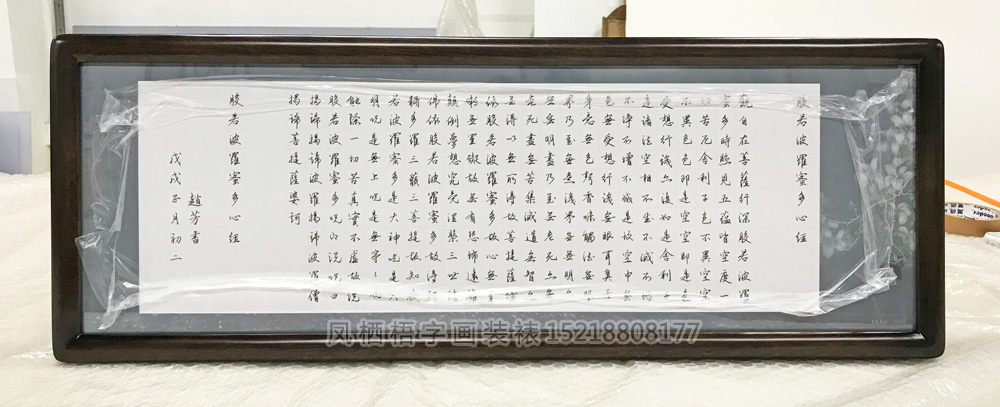 般若波羅蜜多心經
觀自在菩薩行深般若波羅
蜜多時照見五蘊皆空度一
切苦厄舍利子色不異空空
不異色色即是空空即是色
受想行識亦復如是舍利子
是諸法空相不生不滅不垢
不淨不增不減是故空中無
色無受想行識無眼耳鼻舌
身意無色聲香味觸法無眼
界乃至無意識界無無明亦
無無明盡乃至無老死亦無
老死盡無苦集滅道無智亦
無得以無所得故菩提薩埵
依般若波羅蜜多故心無罣
礙無罣礙故無有恐怖遠離
顛倒夢想究竟涅槃三世諸
佛依般若波羅蜜多故得阿
耨多羅三藐三菩提故知般
若波羅蜜多是大神咒是大
明咒是無上咒是無等等咒
能除一切苦真實不虛故說
般若波羅蜜多咒即說咒曰
揭諦揭諦波羅揭諦波羅僧
揭諦菩提薩婆訶
般若波羅蜜多心經
趙芳書
戊戌子月初二
凤栖梧字画装裱 15218808177